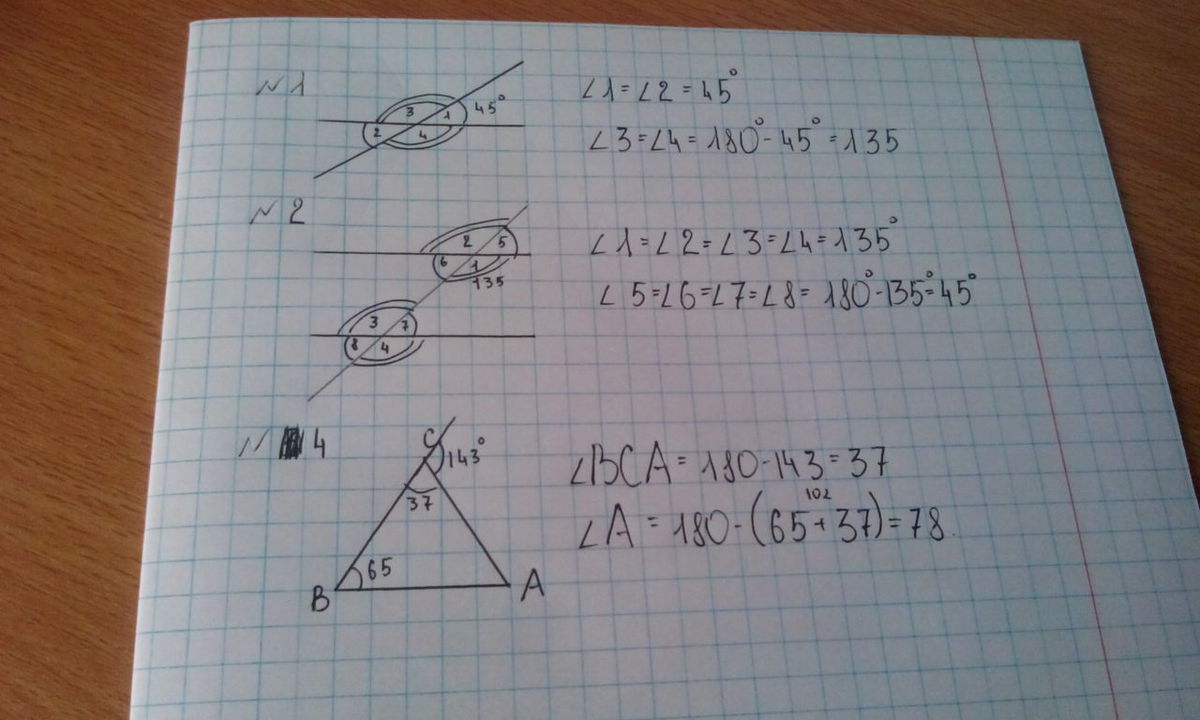 №1
3
1
45°
2
4
∠1=∠2=45°
∠3=∠4=180°-45°=135
№2
2
5
6
1
135
3
7
8
4
∠1=∠2=∠3=∠4=135°
∠5=∠6=∠7=∠8=180°-135°=45°
№ 4
C
143°
37
65
B
A
∠BCA=180-143=37
102
∠A=180-(65+37)=78